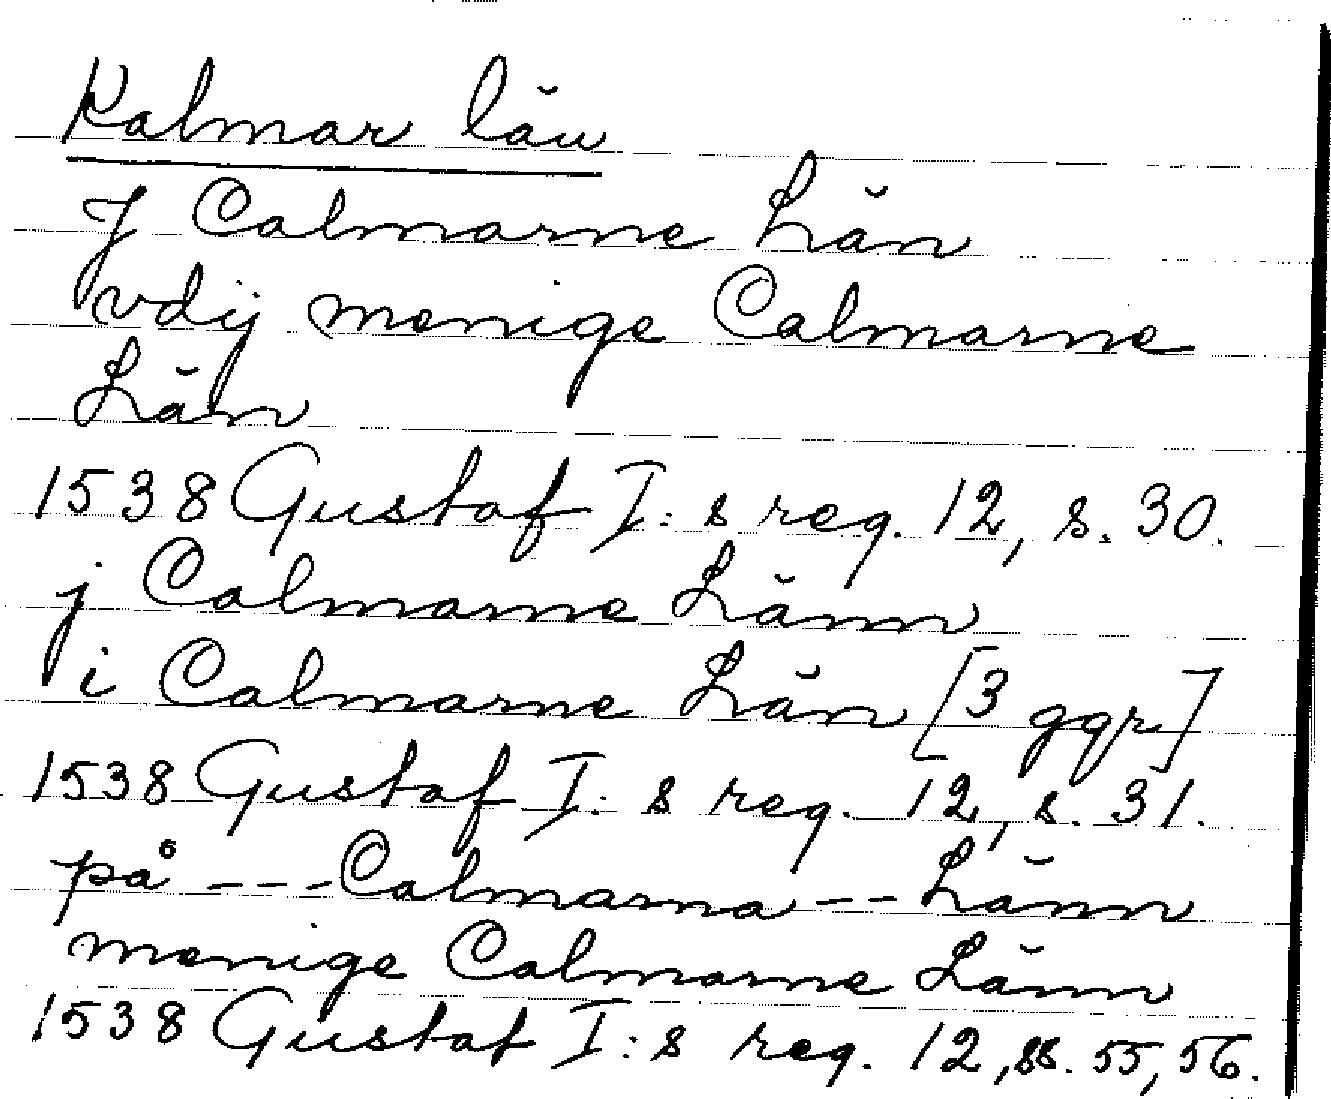 Kalmar län
J Calmarne Län
vdij menige Calmarne
Län
1538 Gustaf I:s reg. 12, s. 30.
j Calmarne Länn
i Calmarne Län [3 ggr]
1538 Gustaf I:s reg. 12, s. 31.
på --- Calmarna -- Länn
menige Calmarne Länn
1538 Gustaf I:s reg. 12, ss. 55, 56.